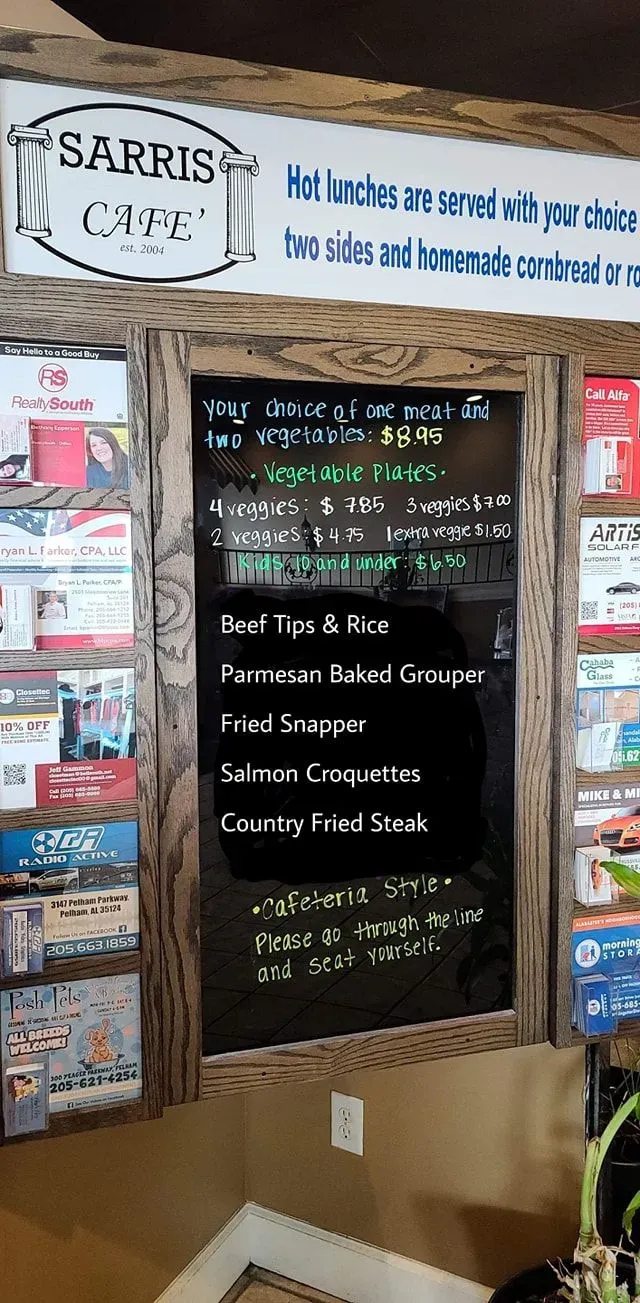 SARRIS
CAFE'
est. 2004
Hot lunches are served with your choice
two sides and homemade cornbread or ro
Say Hello to a Good Buy
RS
RealtySouth
Bethany Epperson
ryan L. Parker, CPA, LLC
Bryan L. Parker, CPA/P
Closettec
10% OFF
FREE HOME ESTIMATE
Jeff Gammon
RADIO ACTIVE
3147 Pelham Parkway,
Pelham, AL 35124
Follow Us on FACEBOOK
205.663.1859
Posh Pets
ALL BREEDS
WELCOME!
300 YEAGER PARKWAY, PELHAM
205-621-4254
your choice of one meat and
two vegetables: $8.95
• Vegetable Plates •
4 veggies: $ 7.85 3 veggies $7.00
2 veggies: $4.75 1 extra veggie $1.50
Kids 10 and under: $6.50
Beef Tips & Rice
Parmesan Baked Grouper
Fried Snapper
Salmon Croquettes
Country Fried Steak
•Cafeteria Style•
Please go through the line
and seat yourself.
Call Alfa
ARTIS
SOLAR F
AUTOMOTIVE
(205)
Cahaba
Glass
05.62
MIKE & MI
ALABASTER'S NEIGHBORHOO
morning
STORA
05-685-